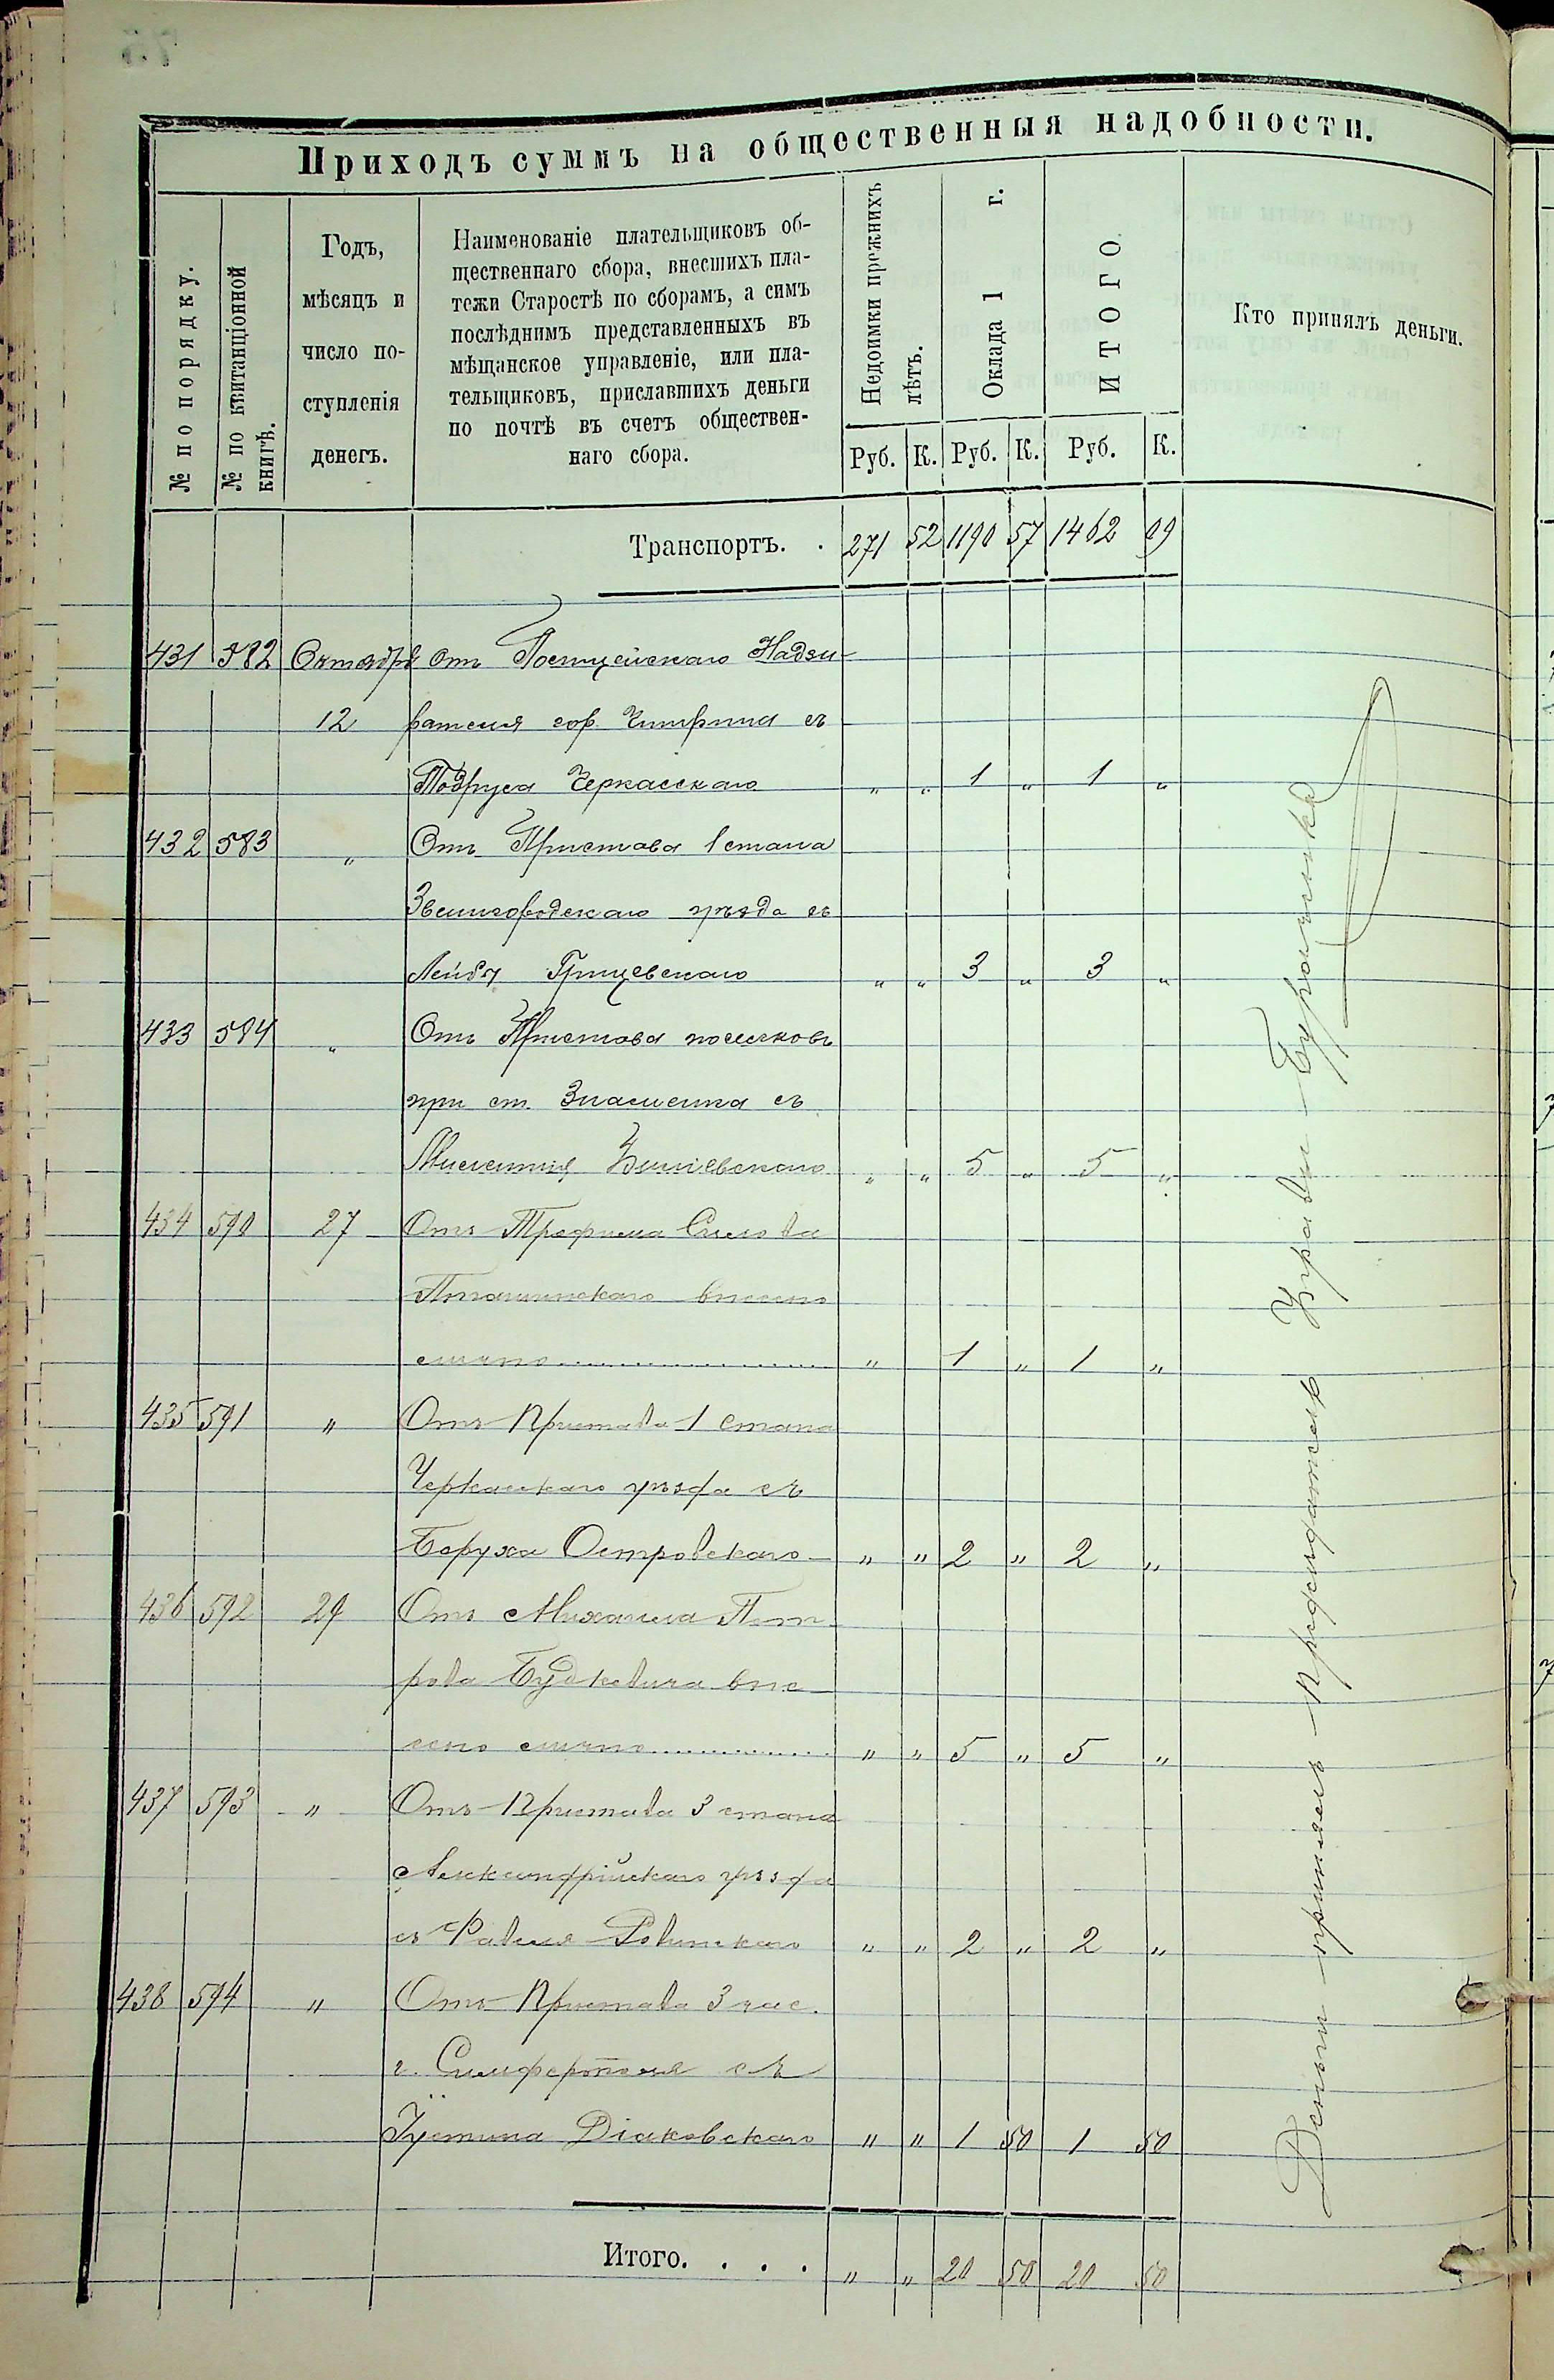 Приходъ суммъ на общественныя надобности.
№ по порядку.
№ по квитанціонной
книгѣ.
Годъ,
мѣсяцъ и
число по-
ступленія
денегъ.
Наименованіе плательщиковъ об-
щественнаго сбора, внесшихъ пла-
тежи Старостѣ по сборамъ, а симъ
послѣднимъ представленныхъ въ
мѣщанское управленіе, или пла-
тельщиковъ, приславшихъ деньги
по почтѣ въ счетъ обществен-
наго сбора.
Недоимки прежнихъ
лѣтъ.
Оклада 1 г.
ИТОГО.
Кто принялъ деньги.
Руб. К. Руб. К. Руб. К.
Транспортъ. . 271 52 1190 57 1462 09
431 582 Октября Отъ Полицейскаго Надзи-
12 рателя гор. Чигирина съ
Черкасскаго „ „ 1 „ 1 „
432 583 „ Отъ Пристава 1 стана
Звенигородскаго уѣзда съ
Лейбы Грищевскаго „ „ 3 „ 3 „
433 584 „ Отъ Пристава поселковъ
при ст. Знаменка съ
„ „ 5 „ 5 „
434 590 27 Отъ Трофима
внесено
лично „ 1 „ 1 „
435 591 „ Отъ Пристава 1 стана
Черкасскаго уѣзда съ
Боруха Островскаго „ „ 2 „ 2 „
436 592 29 Отъ Михаила Пет-
рова Будкевича вне-
сено лично „ „ 5 „ 5 „
437 593 „ Отъ Пристава 3 стана
Александрійскаго уѣзда
съ Ровинскаго „ „ 2 „ 2 „
438 594 „ Отъ Пристава 3 час.
г. Симферополя съ
Іустина Діаковскаго „ „ 1 50 1 50
Итого. . . . „ „ 20 50 20 50
Деньги принялъ Предсѣдатель Управы